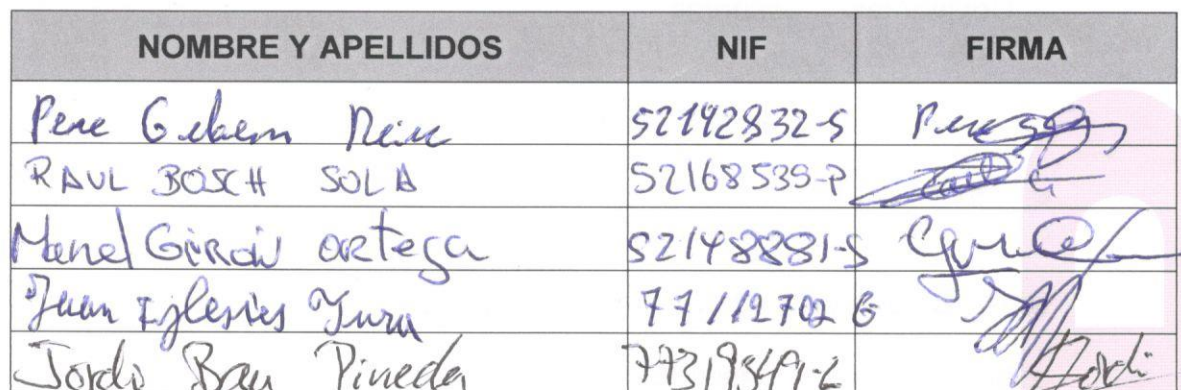 NOMBRE Y APELLIDOS NIF FIRMA
Pere 52142832-S Pere
RAUL BOSCH SOLA 52168539-P
Manel Girón ortega 52148881-S
Juan Iglesies Jura 77112702 G
Jordi Bau Pineda Jordi